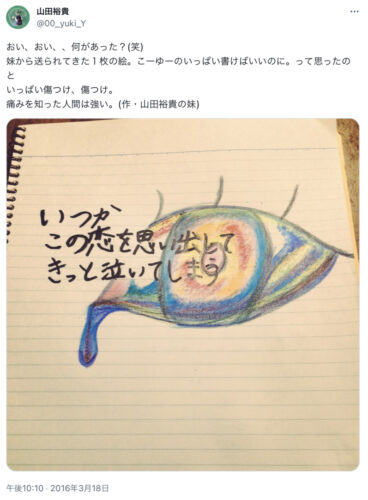 山田裕貴
@00_yuki_Y
おい、おい、、何があった？(笑)
妹から送られてきた１枚の絵。こーゆーのいっぱい書けばいいのに。って思ったの
と
いっぱい傷つけ、傷つけ。
痛みを知った人間は強い。(作・山田裕貴の妹)
いつか
この恋を思い出して
きっと泣いてしまう
午後10:10 · 2016年3月18日